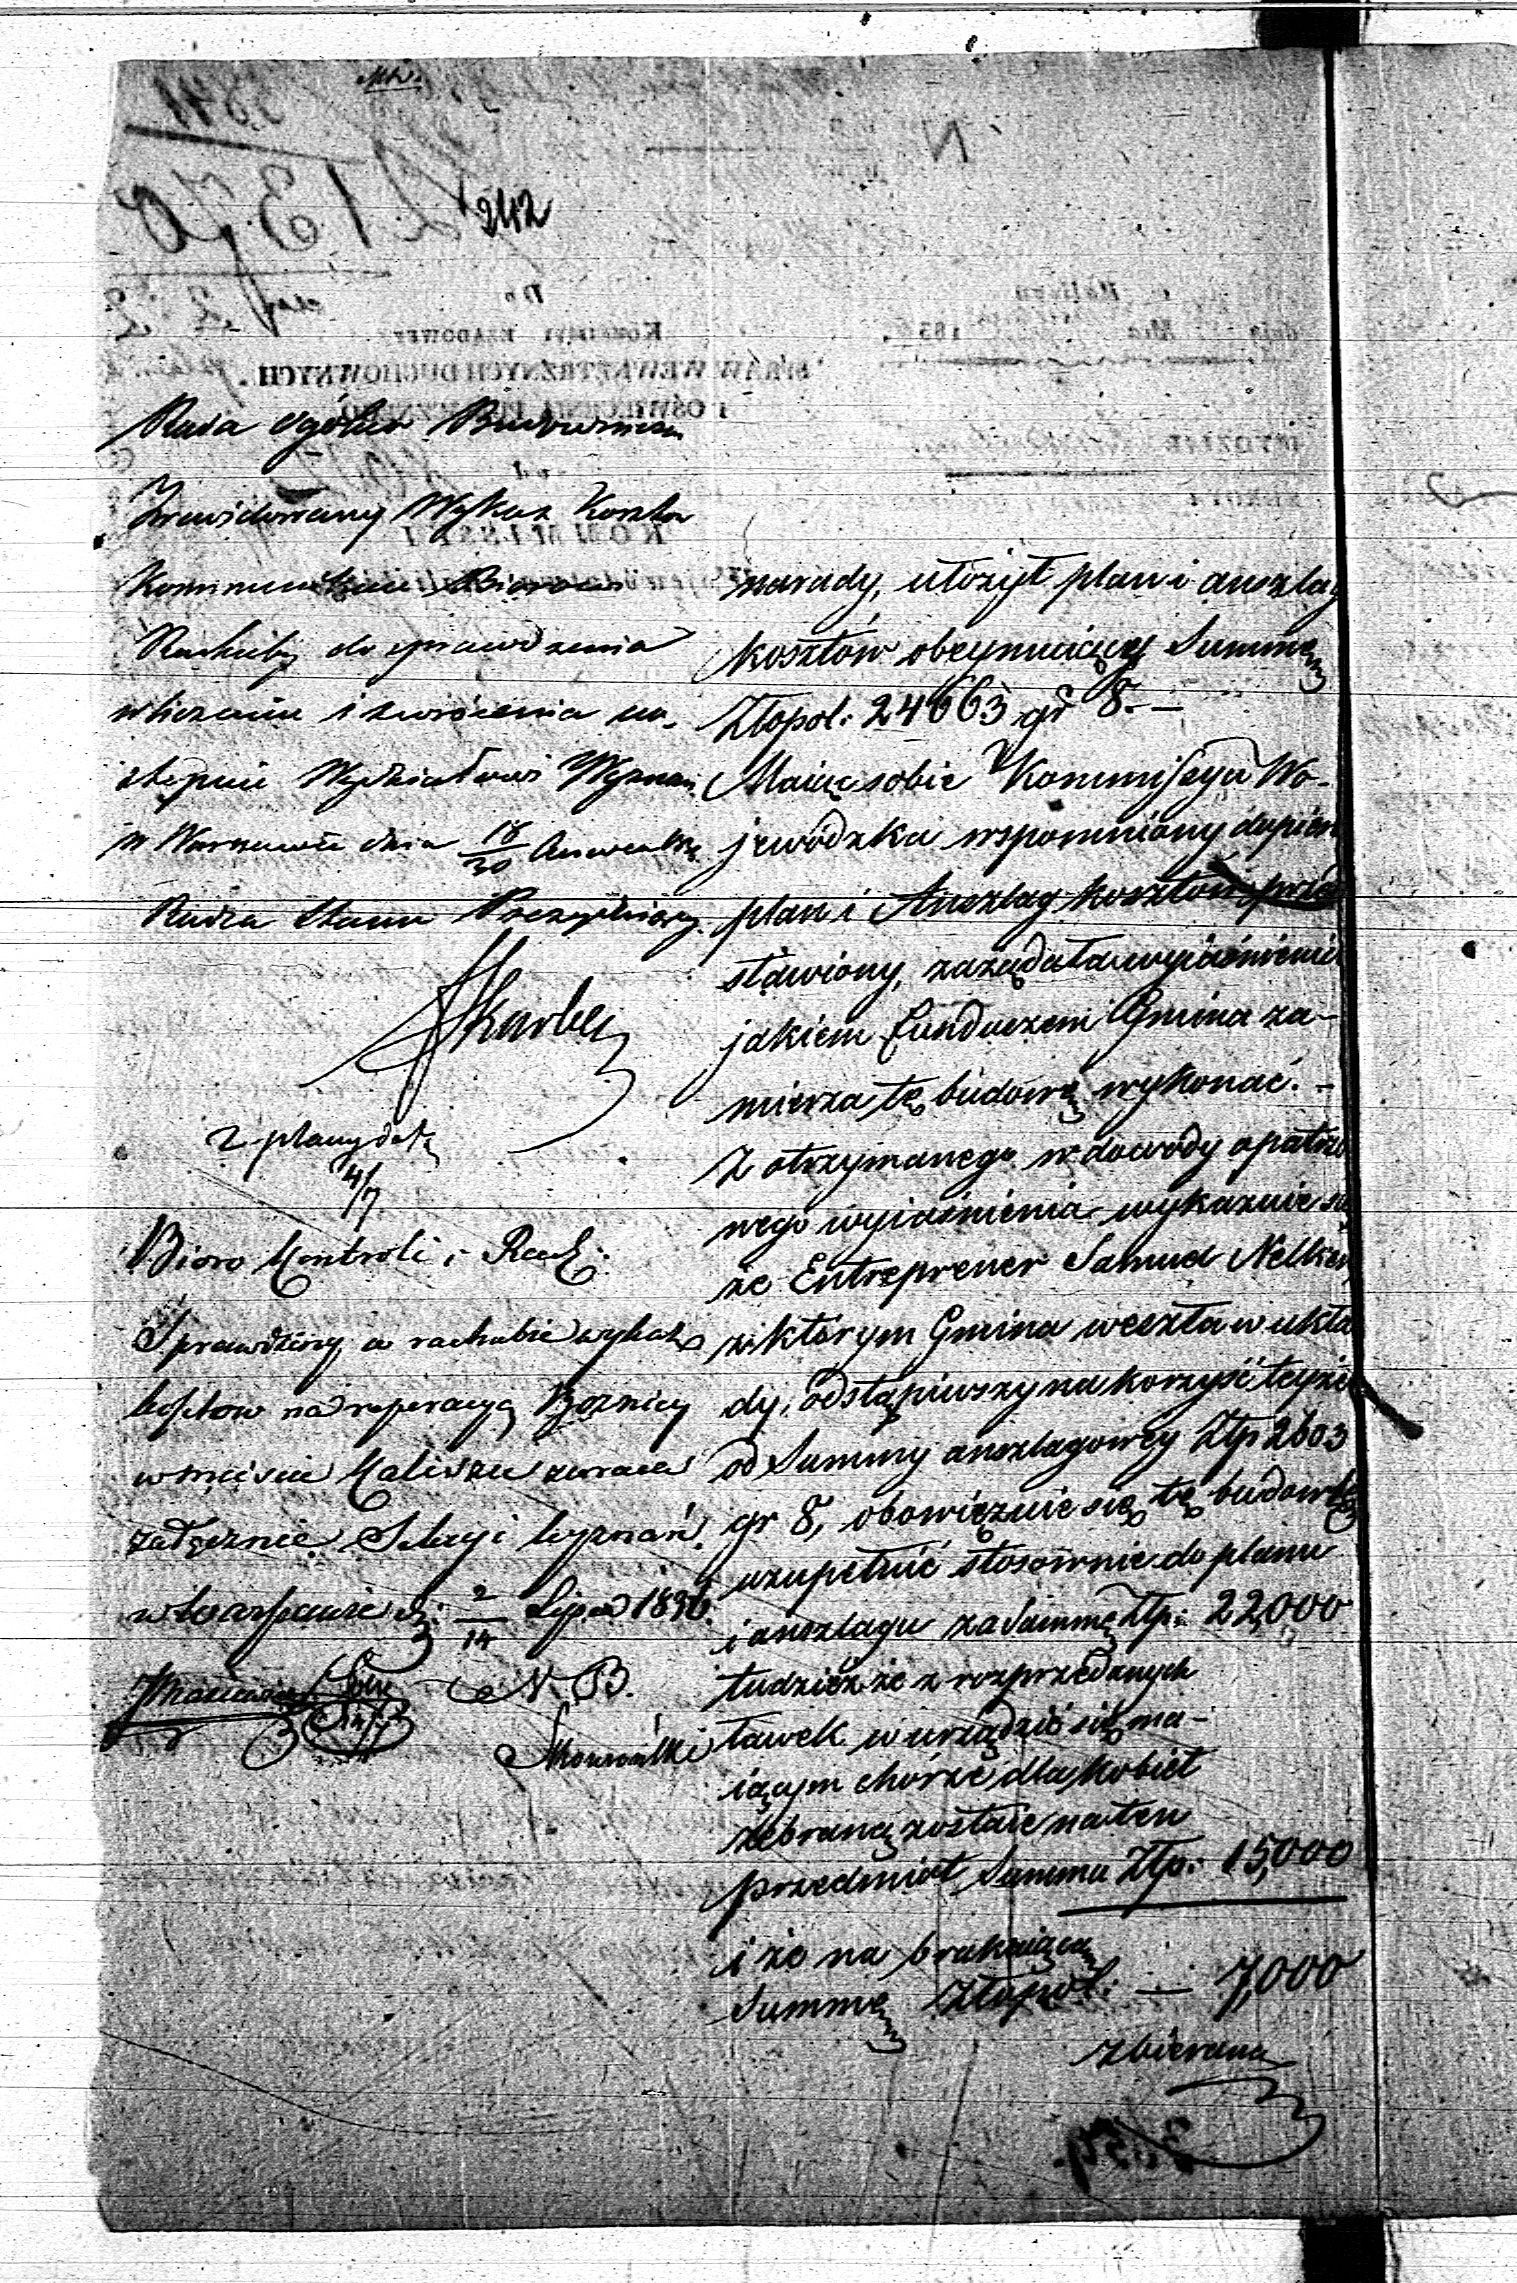 242
Rada Ogólna Budownicza
Zrewidowany Wykaz Kosztów
Kommunikuie Bioro
Rachuby do sprawdzenia
w liczeniu i zwrócenia na-
stępnie Wydziałowi Wyznań
w Warszawie dnia 18/30 Czerwca
Radca Stanu Prezyduiący
Skarbek
2 plany dołą
4/7
Bioro Kontroli i Rach:
Sprawdzony w rachubie wykaz
kosztow na reperacyą Bożnicy
w mieście Kaliszu zwraca
załącznie Sekcyi Wyznań.
w Warszawie d: 2/14 Lipca 1836.
N. B.
narady, ułożył plan i anszlag
kosztów obeymuiący Summę
Złopol: 24663 gr 8.—
Maiąc sobie Kommissya Wo-
jewódzka wspomniony dopiero
plan i Anszlag kosztów prze
stawiony, zażądała wyiaśnienia
jakiem funduszem Gmina za-
mierza tę budowę wykonać.—
Z otrzymanego w dowody opatrzo
nego wyiaśnienia wykazuie się
że Entreprener Samuel Nelken
z którym Gmina weszła w ukła
dy, odstąpiwszy na korzyść teyże
od Summy anszlagowey Złp 2603
gr 8, obowięzuie się tę budowlę
uzupełnić stosownie do planu
i anszlagu za Summę Złp: 22,000
tudzież że z rozprzedanych
ławek w urządzić się ma-
iącym chórze dla kobiet
zebraną zostaie na ten
przedmiot Summa Złp: 15,000
i że na brakuiącą
Summę Złopol: — 7,000
zbieraną